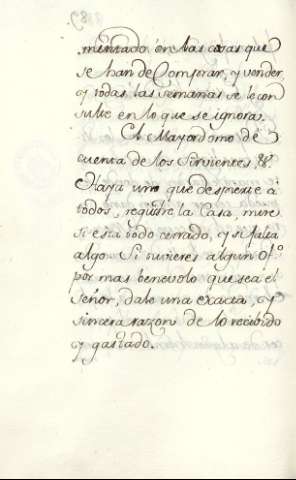 mentado en las cosas que
se han de Comprar, y vender
y todas las semanas se le con
sulte en lo que se ignora.
El Mayordomo dè
cuenta de los Sirvientes &.
Haya uno que despierte à
todos, registre la Casa, mire
si està todo cerrado, y si falta
algo. Si tuvieres algun Of.º
por mas benevolo que sea el
Señor, dale una exacta, y
sincera razon de lo recibido
y gastado.